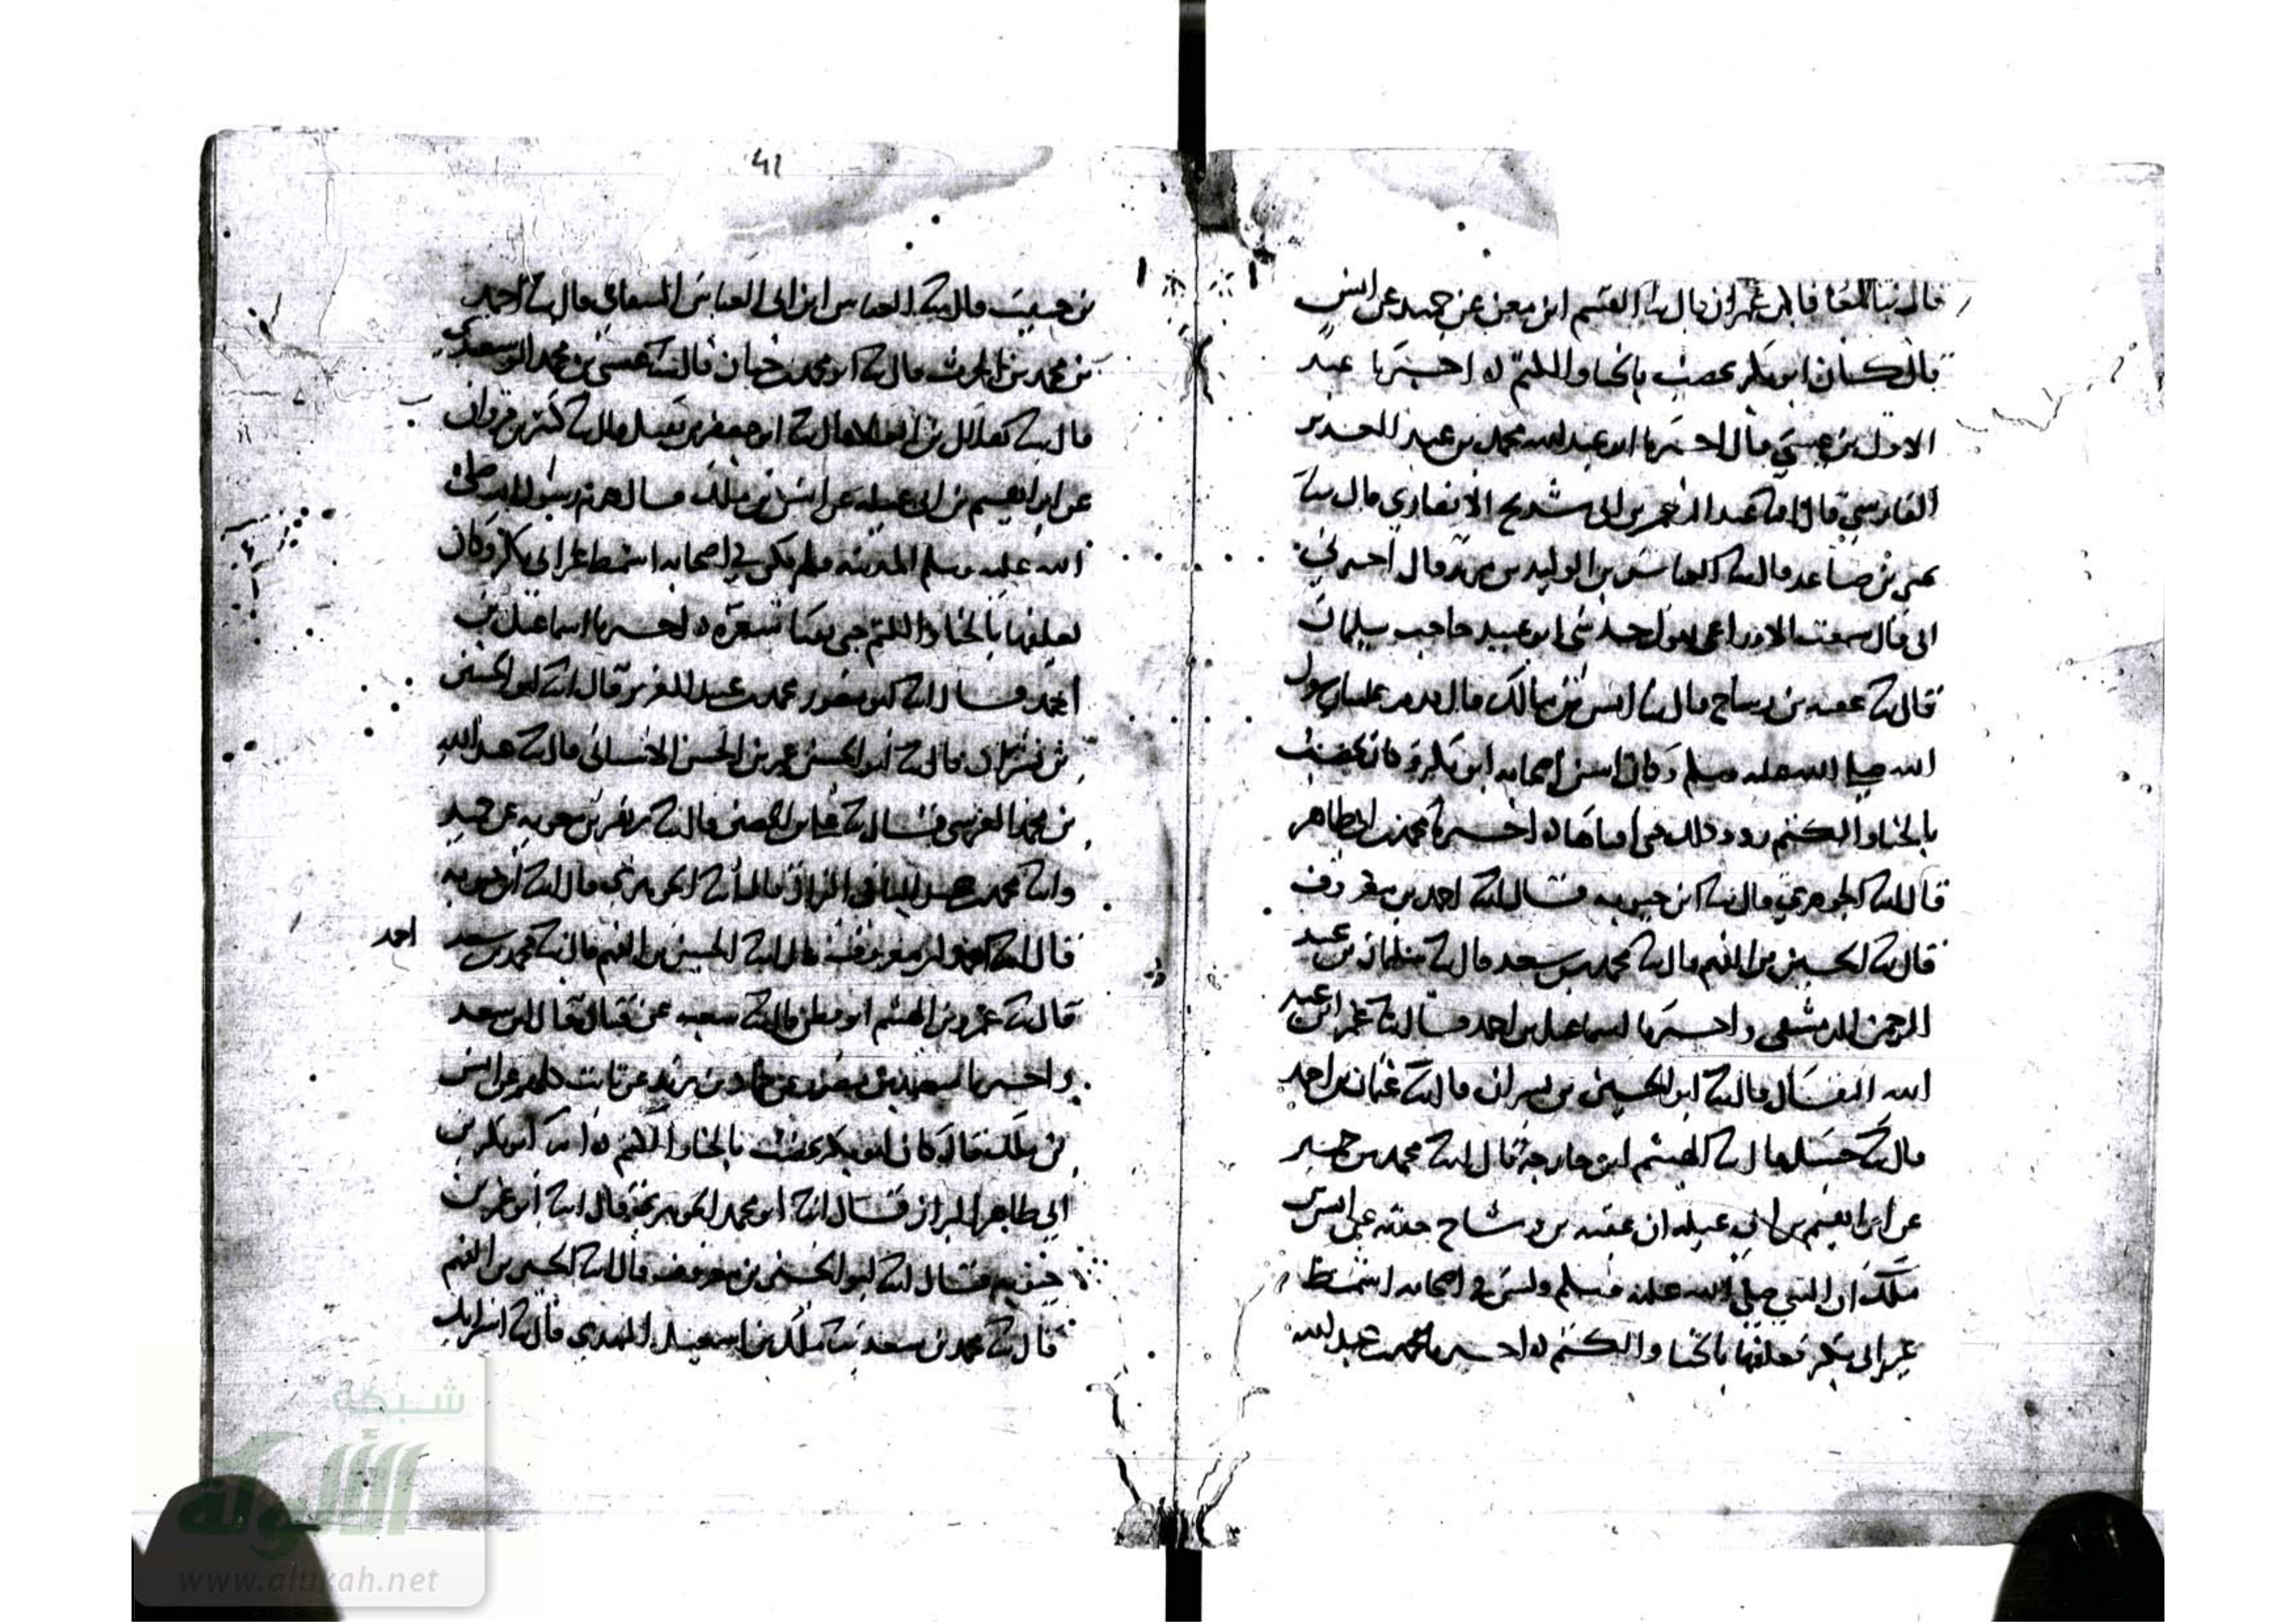 قال ثنا المعافا بن عمران قال ثنا القسم ابن معن عن حميد عن انس
قال كان ابو بكر يخضب بالحنا والكتم ه اخبرنا عبد
الاول بن عيسى قال اخبرنا ابو عبد الله محمد بن عبد العزيز
الفارسي قال انا عبد الرحمن بن ابي شريح الانصاري قال ثنا
بن صاعد قال ثنا العباس بن الوليد بن مزيد قال اخبرني
ابي قال سمعت الاوزاعي يقول حدثني ابو عبيد حاجب سليمان
قال ثنا عقبه بن وساج قال ثنا انس بن مالك قال قدم علينا رسول
الله صلى الله عليه وسلم وكان اسن اصحابه ابو بكر وكان يخضب
بالحنا والكتم اخبرنا محمد بن ابي طاهر
قال انا الجوهري قال انا ابن حيويه قال انا احمد بن معروف
قال انا الحسين بن الفهم قال ثنا محمد بن سعد قال ثنا سليمان بن عبد
الرحمن الدمشقي واخبرنا اسماعيل بن احمد قال انا عمر ابن عبيد
الله البقال قال انا ابو الحسين بن بشران قال انا عثمان بن احمد
قال ثنا حنبل قال ثنا الهيثم ابن خارجة قال ثنا محمد بن حمير
عن ابراهيم بن ابي عبله ان عقبه بن وساج حدثه عن انس بن
ملك ان النبي صلى الله عليه وسلم وليس في اصحابه اشمط
غير ابي بكر فغلفها بالحنا والكتم ه اخبرنا محمد بن عبد الله
41
بن حبيب قال انا العباس ابن ابي العباس قال ثنا احمد
بن محمد بن الحرث قال ثنا ابو محمد بن حيان قال ثنا عيسى بن محمد
قال ثنا ابو جعفر بن نفيل قال ثنا كثير بن مروان
عن ابراهيم بن ابي عبله عن انس بن ملك قال قدم رسول الله صلى
الله عليه وسلم المدينه فلم يكن في اصحابه اشمط غير ابي بكر وكان
يغلفها بالحنا والكتم ه اخبرنا اسماعيل بن
احمد قال انا ابو منصور محمد بن عبد العزيز قال انا ابو الحسين
بن بشران قال انا ابو الحسين عمر بن الحسن الاشناني قال ثنا عبد الله
بن محمد القرشي قال ثنا قال ثنا مروان بن معويه عن حميد
وانا محمد بن عبد الباقي البزاز قال انا الجوهري قال انا ابن حيويه
قال انا احمد بن معروف قال انا الحسين بن الفهم قال ثنا محمد بن سعد
احمد
قال ثنا عمرو بن الهيثم ابو قطن قال ثنا شعبه عن قتادة قال ابن سعد
واخبرنا سعيد بن منصور عن حماد بن زيد عن ثابت كلهم عن انس
بن ملك قال كان ابو بكر يخضب بالحنا والكتم ه انا ابو بكر بن
ابي طاهر البزاز قال انا ابو محمد الجوهري قال انا ابو عمر بن
حيويه قال انا ابو الحسن بن معروف قال انا الحسين بن الفهم
قال ثنا محمد بن سعد ثنا ملك بن اسمعيل النهدي قال ثنا اسرائيل
شبكة
الألوكة
www.alukah.net